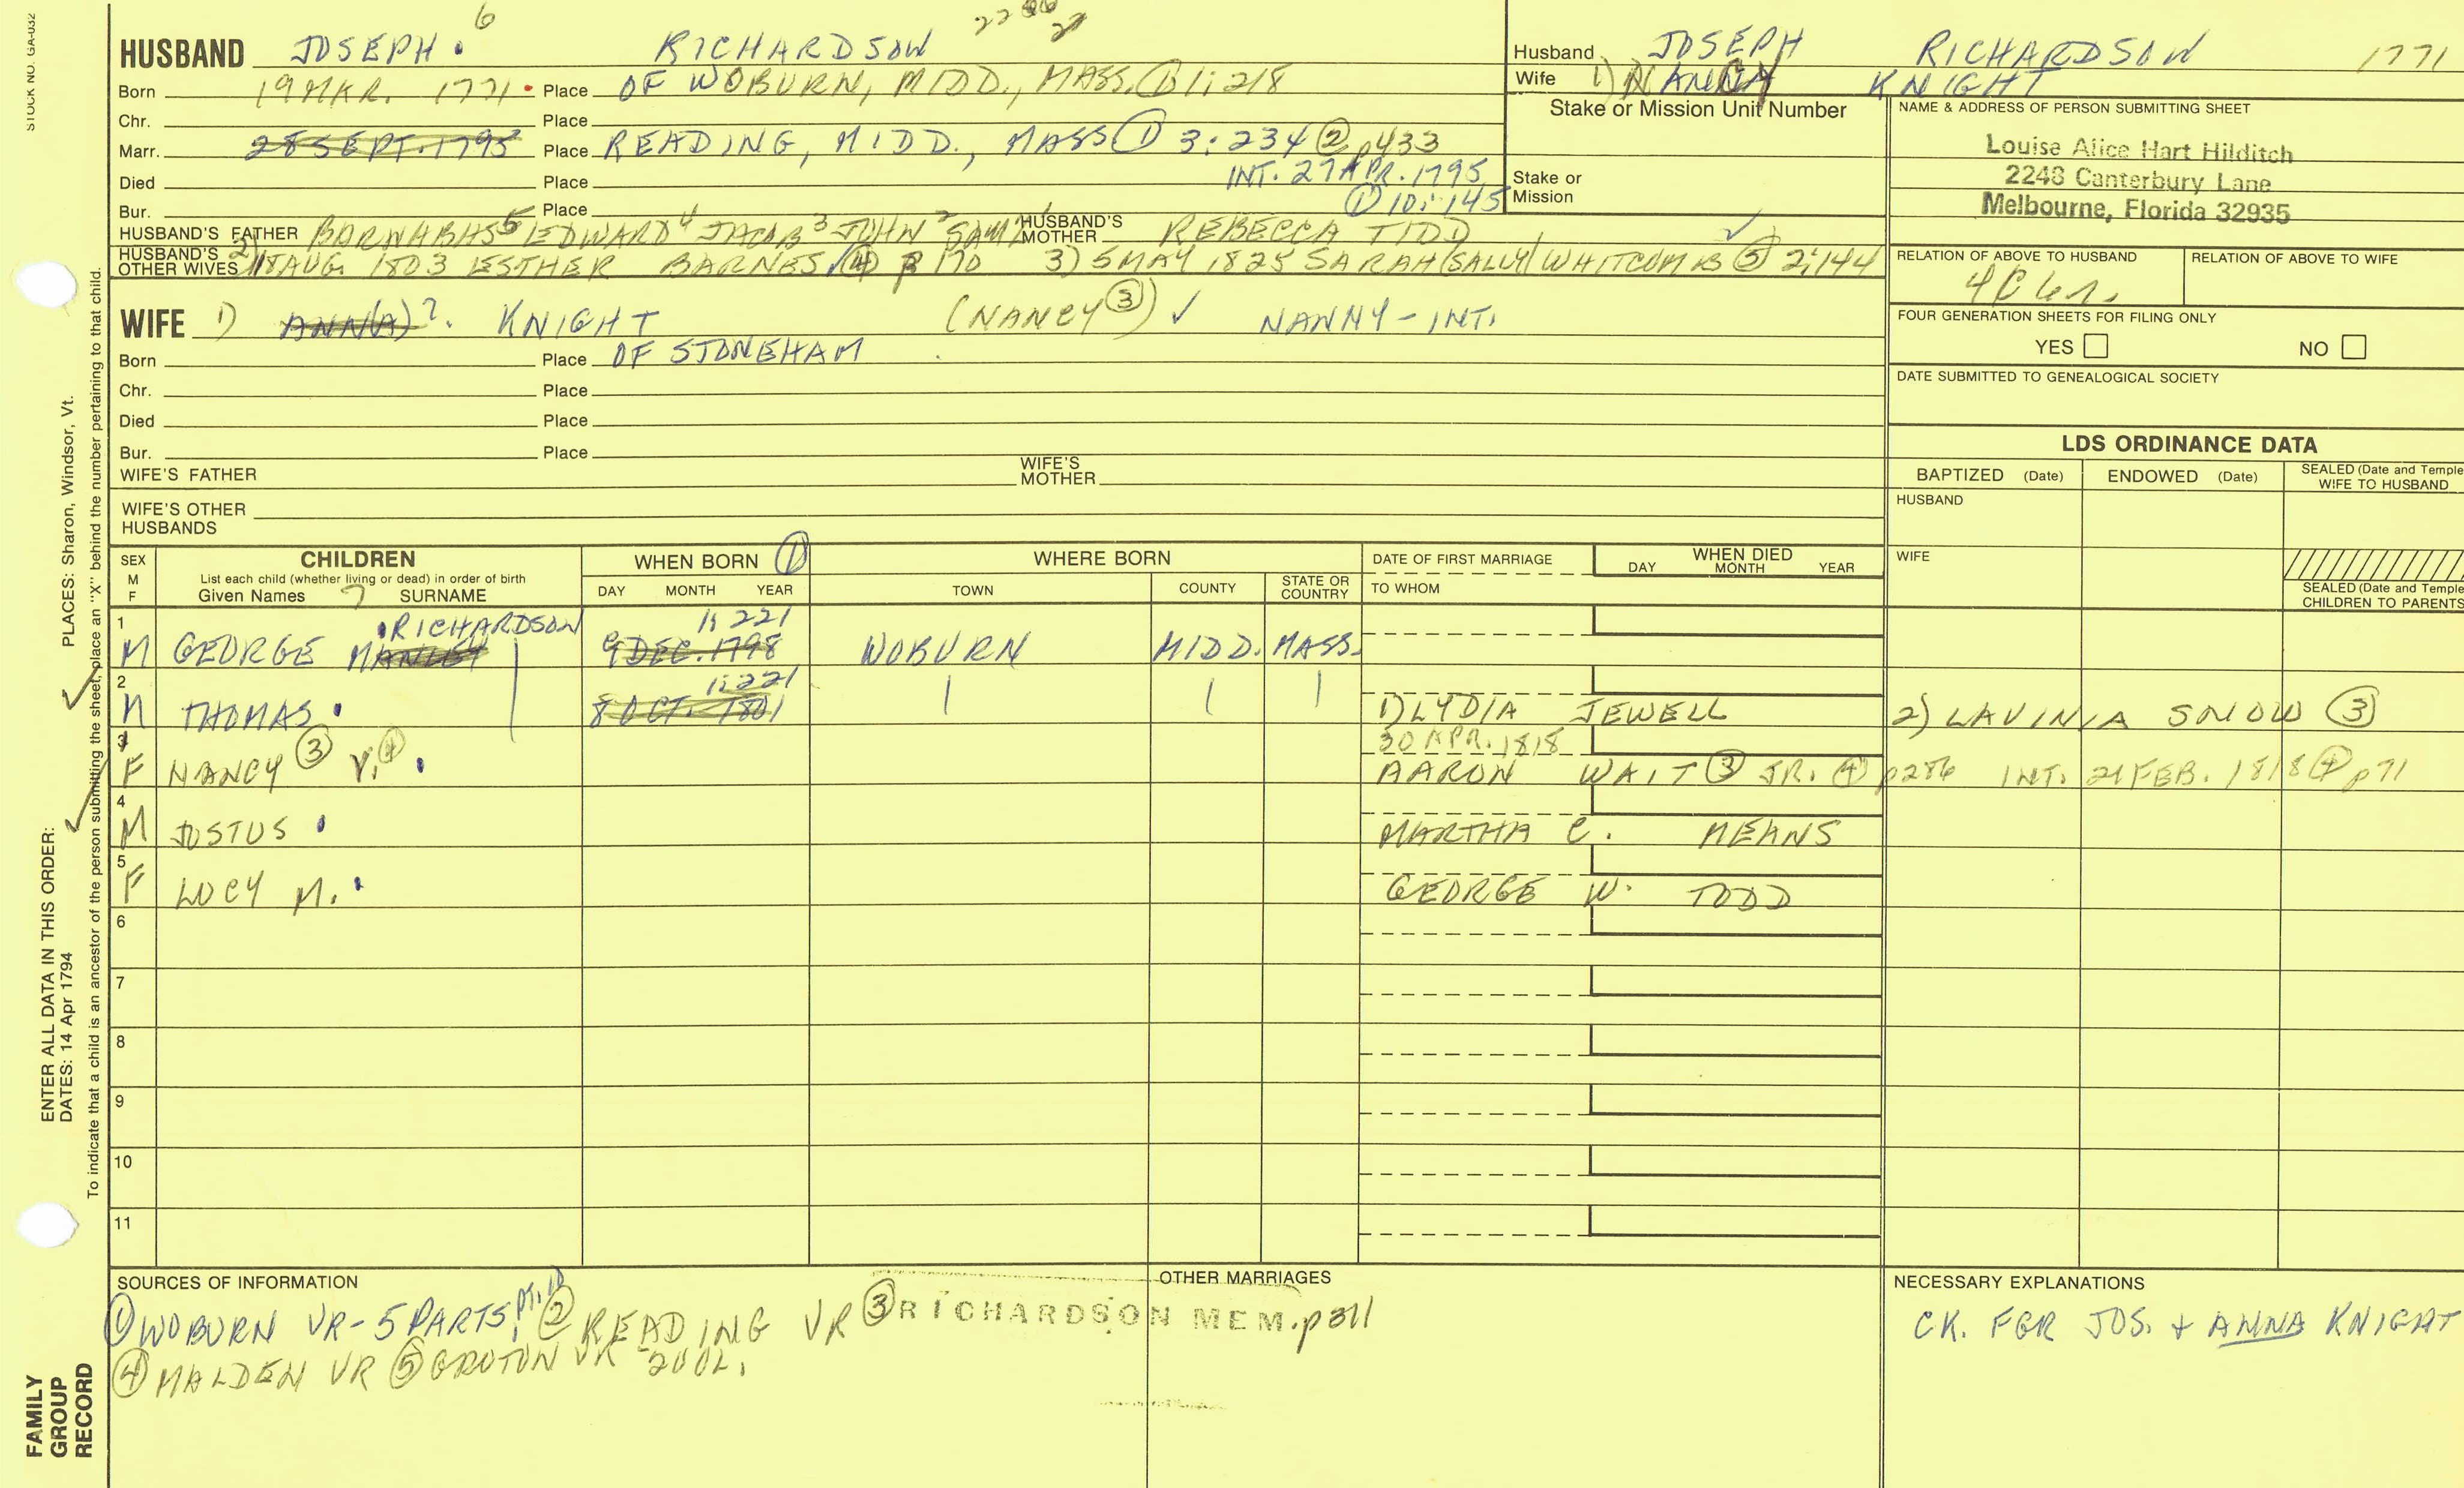 STOCK NO. GA-032
6
HUSBAND JOSEPH. RICHARDSON
Born 19 MAR. 1771 Place OF WOBURN, MIDD., MASS. ① 1:218
Chr. Place
Marr. 28 SEPT. 1795 Place READING, MIDD., MASS ① 3:234 ② p433
INT. 27 APR. 1795
Died Place
① 10:145
Bur. Place
HUSBAND'S FATHER BARNABAS 5 EDWARD 4 JACOB 3 JOHN 2 SAM'L 1 HUSBAND'S MOTHER REBECCA TIDD
HUSBAND'S OTHER WIVES 2) 18 AUG. 1803 ESTHER BARNES ④ p 170 3) 5 MAY 1825 SARAH (SALLY) WHITCOMB ⑤ 2:144
Husband JOSEPH RICHARDSON 1771
Wife 1) NANCY KNIGHT
Stake or Mission Unit Number
Stake or
Mission
NAME & ADDRESS OF PERSON SUBMITTING SHEET
Louise Alice Hart Hilditch
2248 Canterbury Lane
Melbourne, Florida 32935
RELATION OF ABOVE TO HUSBAND RELATION OF ABOVE TO WIFE
FOUR GENERATION SHEETS FOR FILING ONLY
YES NO
DATE SUBMITTED TO GENEALOGICAL SOCIETY
WIFE 1) ANN(A)? KNIGHT (NANCY ③) ✓ NANNY - INT.
Born Place OF STONEHAM
Chr. Place
Died Place
Bur. Place
WIFE'S FATHER WIFE'S MOTHER
WIFE'S OTHER HUSBANDS
LDS ORDINANCE DATA
BAPTIZED (Date) ENDOWED (Date) SEALED (Date and Temple) WIFE TO HUSBAND
HUSBAND
WIFE
SEALED (Date and Temple)
CHILDREN TO PARENTS
SEX M F CHILDREN WHEN BORN ① WHERE BORN DATE OF FIRST MARRIAGE WHEN DIED
List each child (whether living or dead) in order of birth
Given Names 7 SURNAME DAY MONTH YEAR TOWN COUNTY STATE OR COUNTRY TO WHOM DAY MONTH YEAR
1 RICHARDSON 1:221
M GEORGE MANLEY 9 DEC. 1798 WOBURN MIDD. MASS.
2 1:221
M THOMAS. 8 OCT. 1801 1) LYDIA JEWELL 2) LAVINIA SNOW ③
3 30 APR. 1818
F NANCY ③ V. ④ AARON WAIT ③ JR. ④ p286 INT. 21 FEB. 1818 ④ p71
4
M JUSTUS MARTHA C. MEANS
5
F LUCY M. GEORGE W. TODD
6
7
8
9
10
11
SOURCES OF INFORMATION
① WOBURN VR - 5 PARTS, PT. 1 ② READING VR ③ RICHARDSON MEM. p311
④ MALDEN VR ⑤ GROTON VR - 2 VOL.
OTHER MARRIAGES
NECESSARY EXPLANATIONS
CK. FGR JOS. + ANNA KNIGHT
ENTER ALL DATA IN THIS ORDER:
DATES: 14 Apr 1794 PLACES: Sharon, Windsor, Vt.
To indicate that a child is an ancestor of the person submitting the sheet, place an "X" behind the number pertaining to that child.
FAMILY
GROUP
RECORD